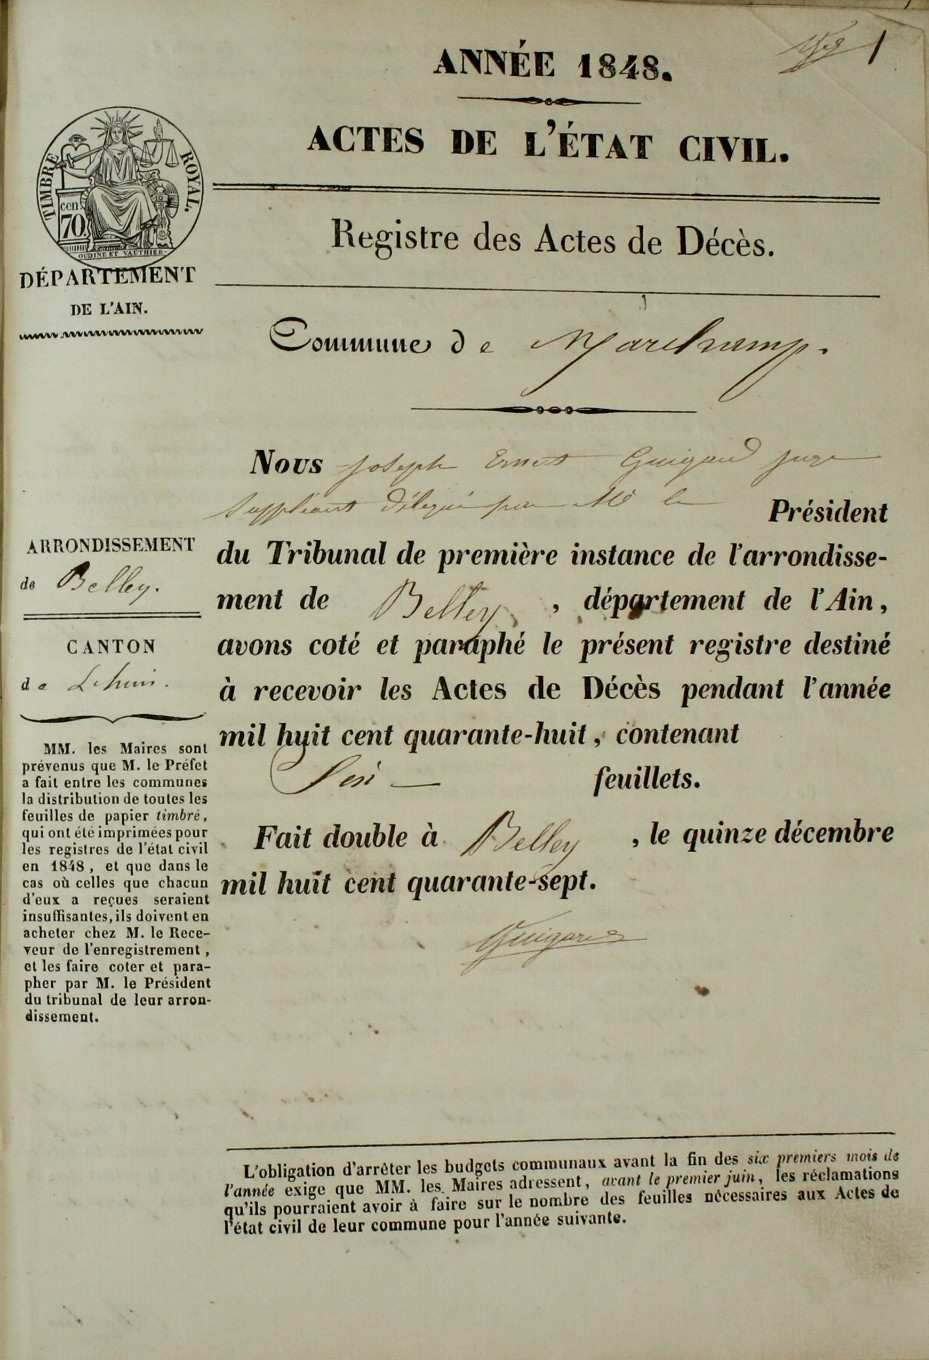 1
ANNÉE 1848.
ACTES DE L'ÉTAT CIVIL.
TIMBRE ROYAL.
cen
70
OUDINÉ ET VAUTHIER
DÉPARTEMENT
DE L'AIN.
Registre des Actes de Décès.
Commune de Marchamp.
Nous Joseph Ernest Guigard juge
Suppléant délégué par Mr le Président
du Tribunal de première instance de l'arrondisse-
ment de Belley, département de l'Ain,
avons coté et paraphé le présent registre destiné
à recevoir les Actes de Décès pendant l'année
mil huit cent quarante-huit, contenant
feuillets.
Fait double à Belley, le quinze décembre
mil huit cent quarante-sept.
Guigard
ARRONDISSEMENT
de Belley.
CANTON
de Lhuis.
MM. les Maires sont
prévenus que M. le Préfet
a fait entre les communes
la distribution de toutes les
feuilles de papier timbré,
qui ont été imprimées pour
les registres de l'état civil
en 1848, et que dans le
cas où celles que chacun
d'eux a reçues seraient
insuffisantes, ils doivent en
acheter chez M. le Rece-
veur de l'enregistrement,
et les faire coter et para-
pher par M. le Président
du tribunal de leur arron-
dissement.
L'obligation d'arrêter les budgets communaux avant la fin des six premiers mois de
l'année exige que MM. les Maires adressent, avant le premier juin, les réclamations
qu'ils pourraient avoir à faire sur le nombre des feuilles nécessaires aux Actes de
l'état civil de leur commune pour l'année suivante.